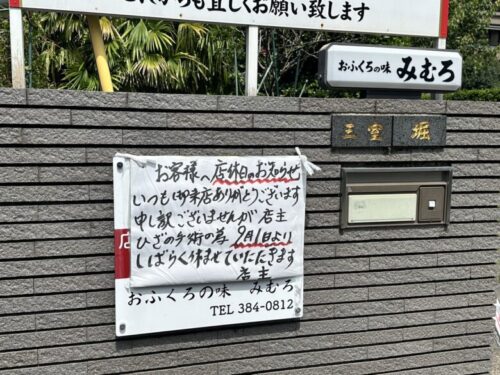 これからも宜しくお願い致します
おふくろの味 みむろ
三室 堀
お客様へ 店休日のお知らせ
いつも御来店ありがとうございます
申し訳ございませんが 店主
ひざの手術の為 9月1日より
しばらく休ませていただきます
店主
店
おふくろの味 みむろ
TEL 384-0812